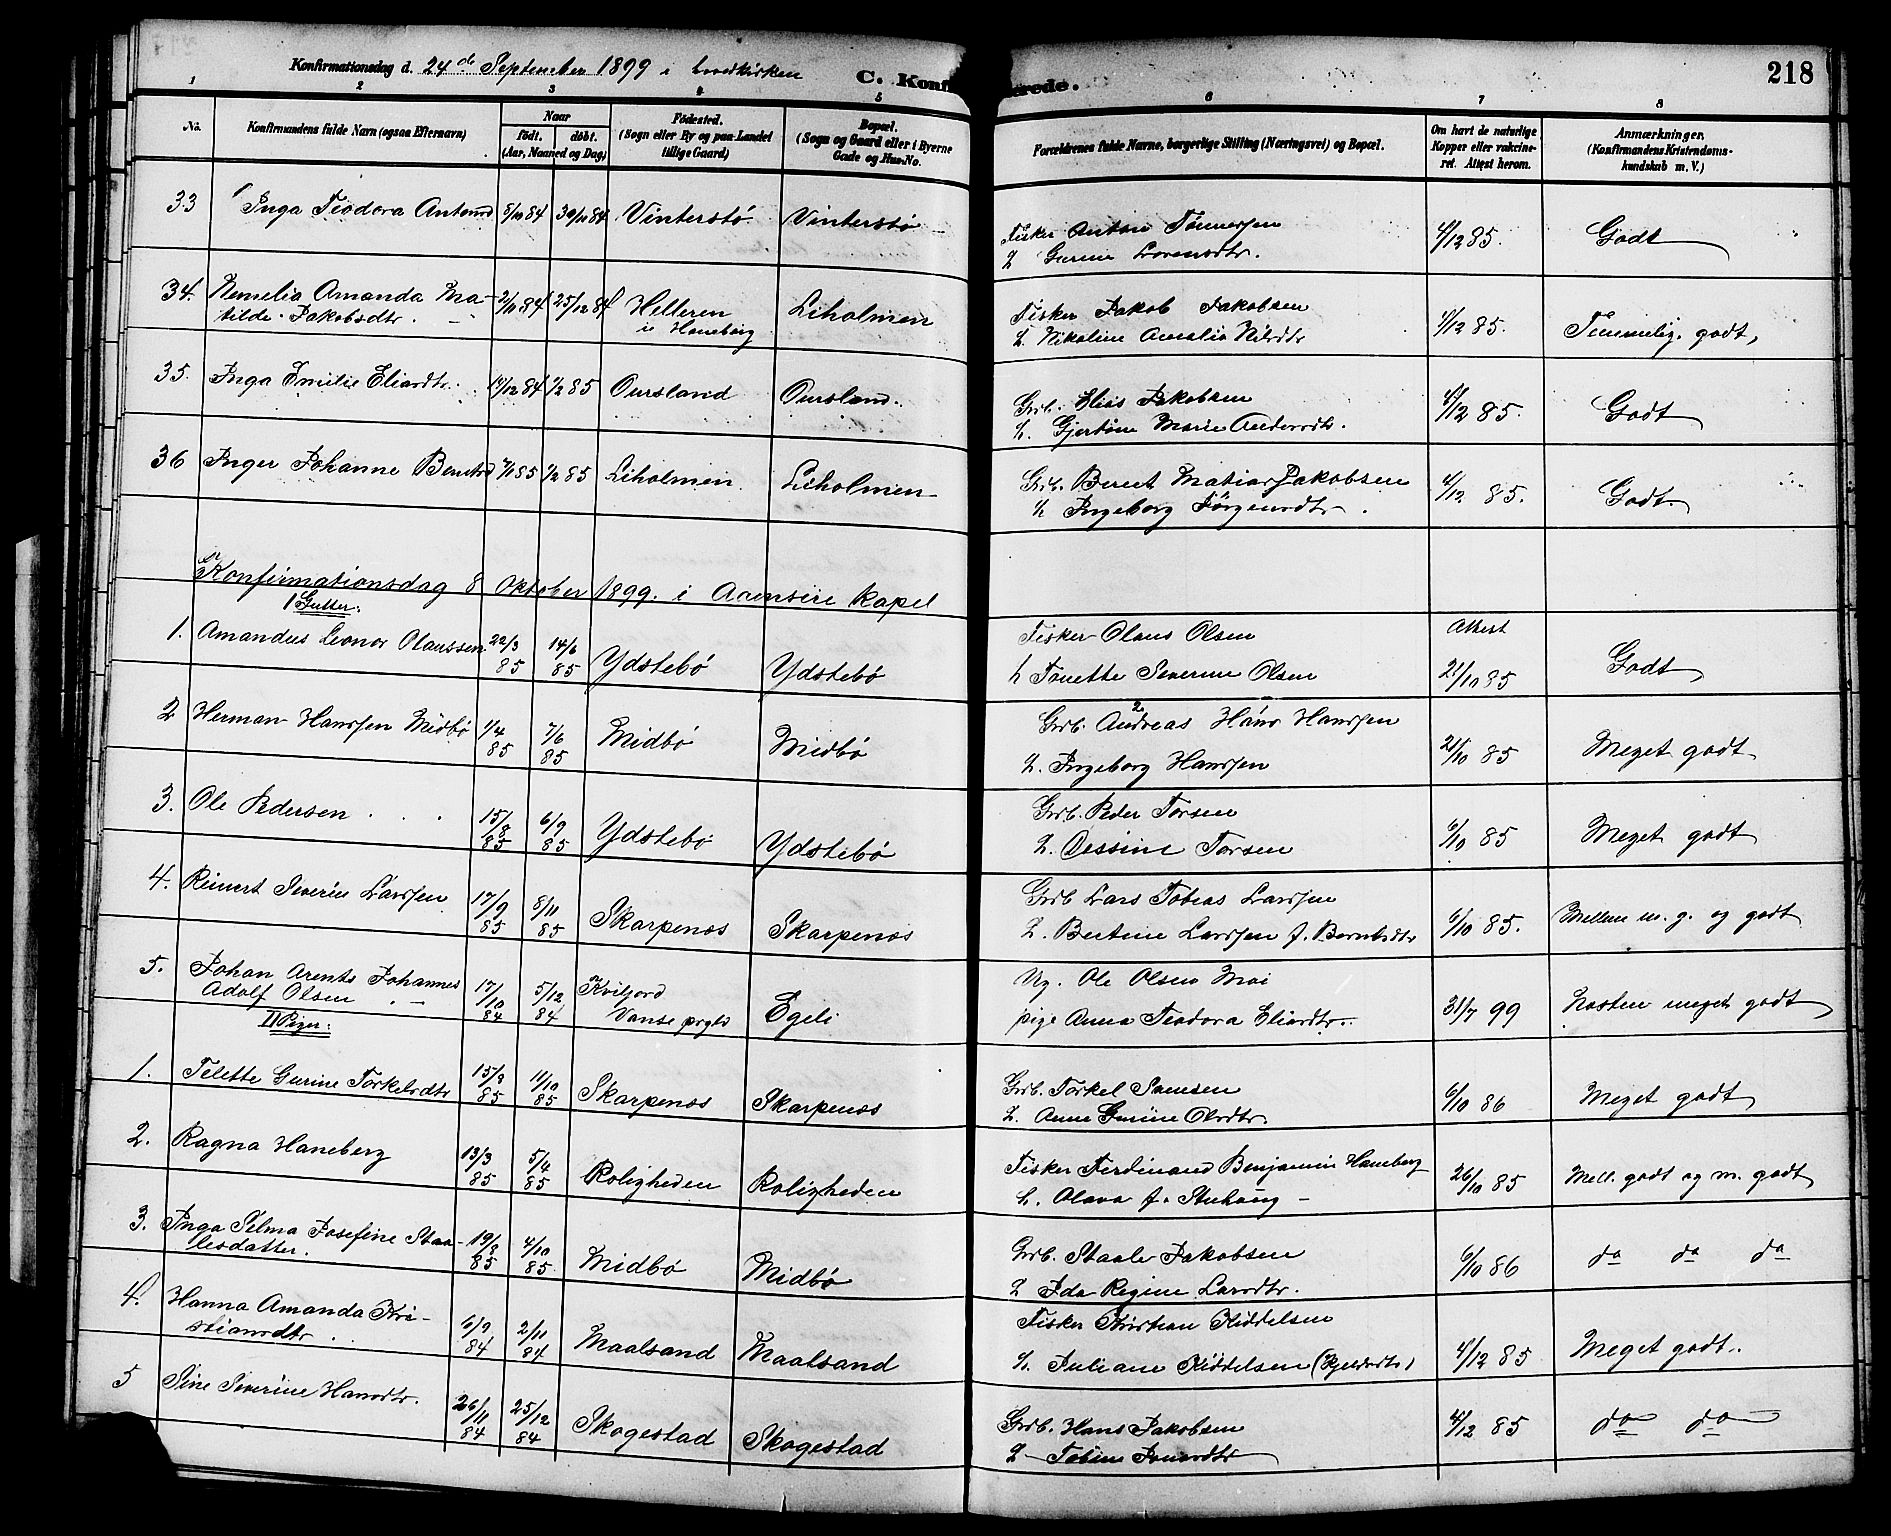 Konfirmationsdag d. 24de September 1899 i hovedkirken
C. Konfirmerede.
218
1 2 3 4 5 6 7 8
No. Konfirmandens fulde Navn (ogsaa Efternavn) Naar født. døbt. (Aar, Maaned og Dag) Fødested. (Sogn eller By og paa Landet tillige Gaard) Bopæl. (Sogn og Gaard eller i Byerne Gade og Hus-No. Forældrenes fulde Navne, borgerlige Stilling (Næringsvei) og Bopæl. Om havt de naturlige Kopper eller vakcineret. Attest herom. Anmærkninger. (Konfirmandens Kristendomskundskab m. V.)
33 Inga Teodora Antonsd 8/10 84 30/11 84 Vinterstø Vinterstø Fisker Anton Tønnessen 4/12 85. Godt
2 Gurine Lorensdtr.
34. Kemelia Amanda Ma- 2/11 84 25/12 84 Helleren Liholmen Fisker Jakob Jakobsen 4/12 85. Temmelig godt,
tilde Jakobsdtr. i Haneberg 2. Nikoline Amalia Nilsdtr
35. Inga Emilie Eliasdtr. 14/12 84 1/2 85 Oursland Oursland. Grb. Elias Jakobsen 4/12 85. Godt
h. Gjertine Marie Andersdtr.
36 Inger Johanne Berntsd 7/1 85 1/2 85 Liholmen Liholmen Grb. Bernt Matias Jakobsen 4/12 85. Godt.
h Ingeborg Jørgensdtr.
Konfirmationsdag 8 Oktober 1899. i Aaensire kapel
I Gutter:
1. Amandus Leonor Olaussen 22/3 85 14/6 85 Ydstebø Ydstebø Fisker Olaus Olsen Attest 21/10 85 Godt
h Tonette Severine Olsen
2 Herman Hanssen Midbø 1/4 85 7/6 85 Midbø Midbø Grb. Andreas Hans Hanssen 21/10 85 Meget godt
2. Ingeborg Hanssen
3. Ole Pedersen 15/8 85 6/9 85 Ydstebø Ydstebø Grb. Peder Torsen 6/10 85 Meget godt
2. Tessine Torsen
4. Reinert Severin Larssen 17/9 85 8/11 85 Skarpenæs Skarpenæs Grb Lars Tobias Larssen 6/10 85. Mellem m. g. og godt
2. Bertine Larssen f. Berntsdtr
5. Johan Arents Johannes 17/10 84 5/12 84 Kviljord Egeli Ug. Ole Olsen Moi 31/7 99 Næsten meget godt
Adolf Olsen Vanse prgld pige Anna Teodora Eliasdtr.
II Piger:
1. Telette Gurine Torkelsdtr 15/8 85 11/10 85 Skarpenæs Skarpenæs Grb. Torkel Samsen 6/10 86 Meget godt
2. Anne Gurine Olsdtr.
2. Ragna Haneberg 13/3 85 5/4 85 Roligheden Roligheden Fisker Ferdinand Benjamin Haneberg 26/10 85 Mell. godt og m. godt
h. Olava f.
3. Inga Selma Josefine Staa- 19/8 85 4/10 85. Midbø Midbø Grb. Staale Jakobsen 6/10 86 do do do
lesdatter. 2 Ida Regine Larsdtr.
4. Hanna Amanda Kri- 10/9 84 2/11 84 Maalsand Maalsand Fisker Kristian Kiddelsen 4/12 85 Meget godt.
stiansdtr h. Juliane Kiddelsen
5 Sine Severine Hansdtr. 26/11 84 25/12 84 Skogestad Skogestad Grb. Hans Jakobsen 4/12 85 do do
2 Tobine Jonasdtr